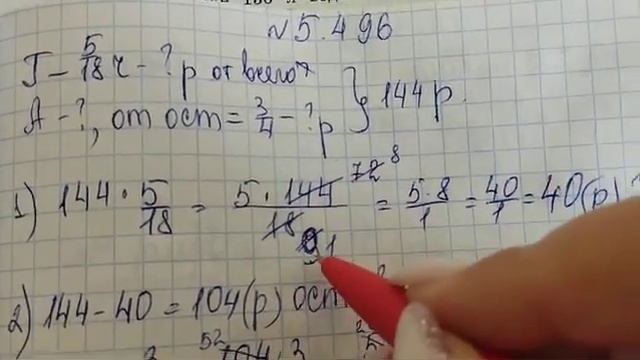 №5.496
Т – 5/18 ч – ? р от всего
А – ?, от ост = 3/4 – ? р } 144 р.
1) 144 · 5/18 = 5 · 144 72 8 / 18 9 1 = 5·8/1 = 40/1 = 40 (р)
2) 144 – 40 = 104 (р) ост
52 104 · 3